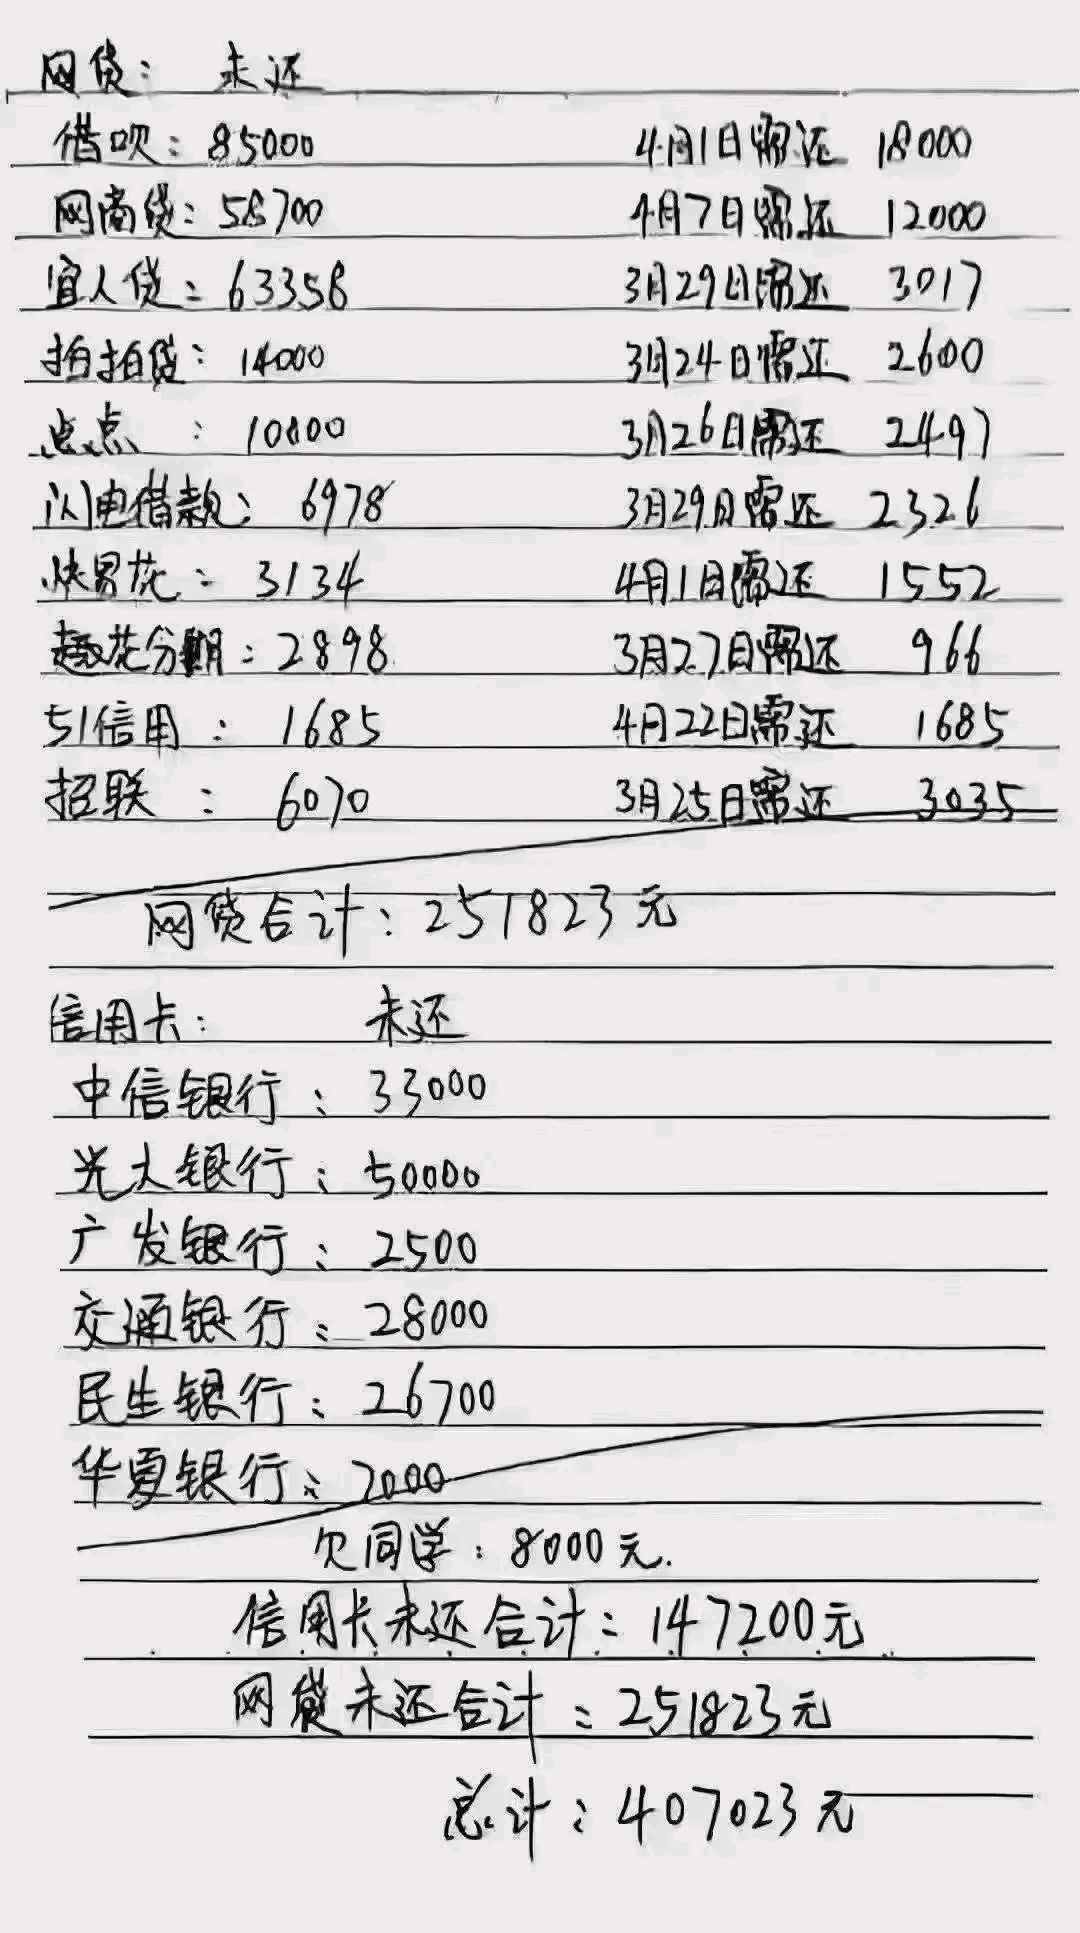 网贷： 未还
借呗：85000 4月1日需还 18000
网商贷：58700 4月7日需还 12000
宜人贷：63358 3月29日需还 3017
拍拍贷：14000 3月24日需还 2600
点点：10000 3月26日需还 2497
闪电借款：6978 3月29日需还 2326
快易花：3134 4月1日需还 1552
趣花分期：2898 3月27日需还 966
51信用：1685 4月22日需还 1685
招联：6070 3月25日需还 3035
网贷合计：251823元
信用卡： 未还
中信银行：33000
光大银行：50000
广发银行：2500
交通银行：28000
民生银行：26700
华夏银行：7000
欠同学：8000元.
信用卡未还合计：147200元
网贷未还合计：251823元
总计：407023元